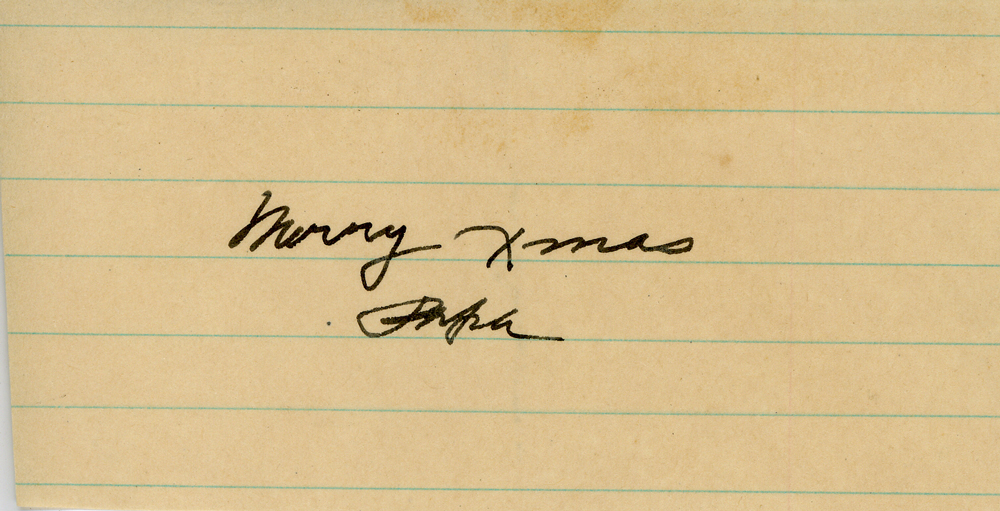 Merry Xmas
Papa